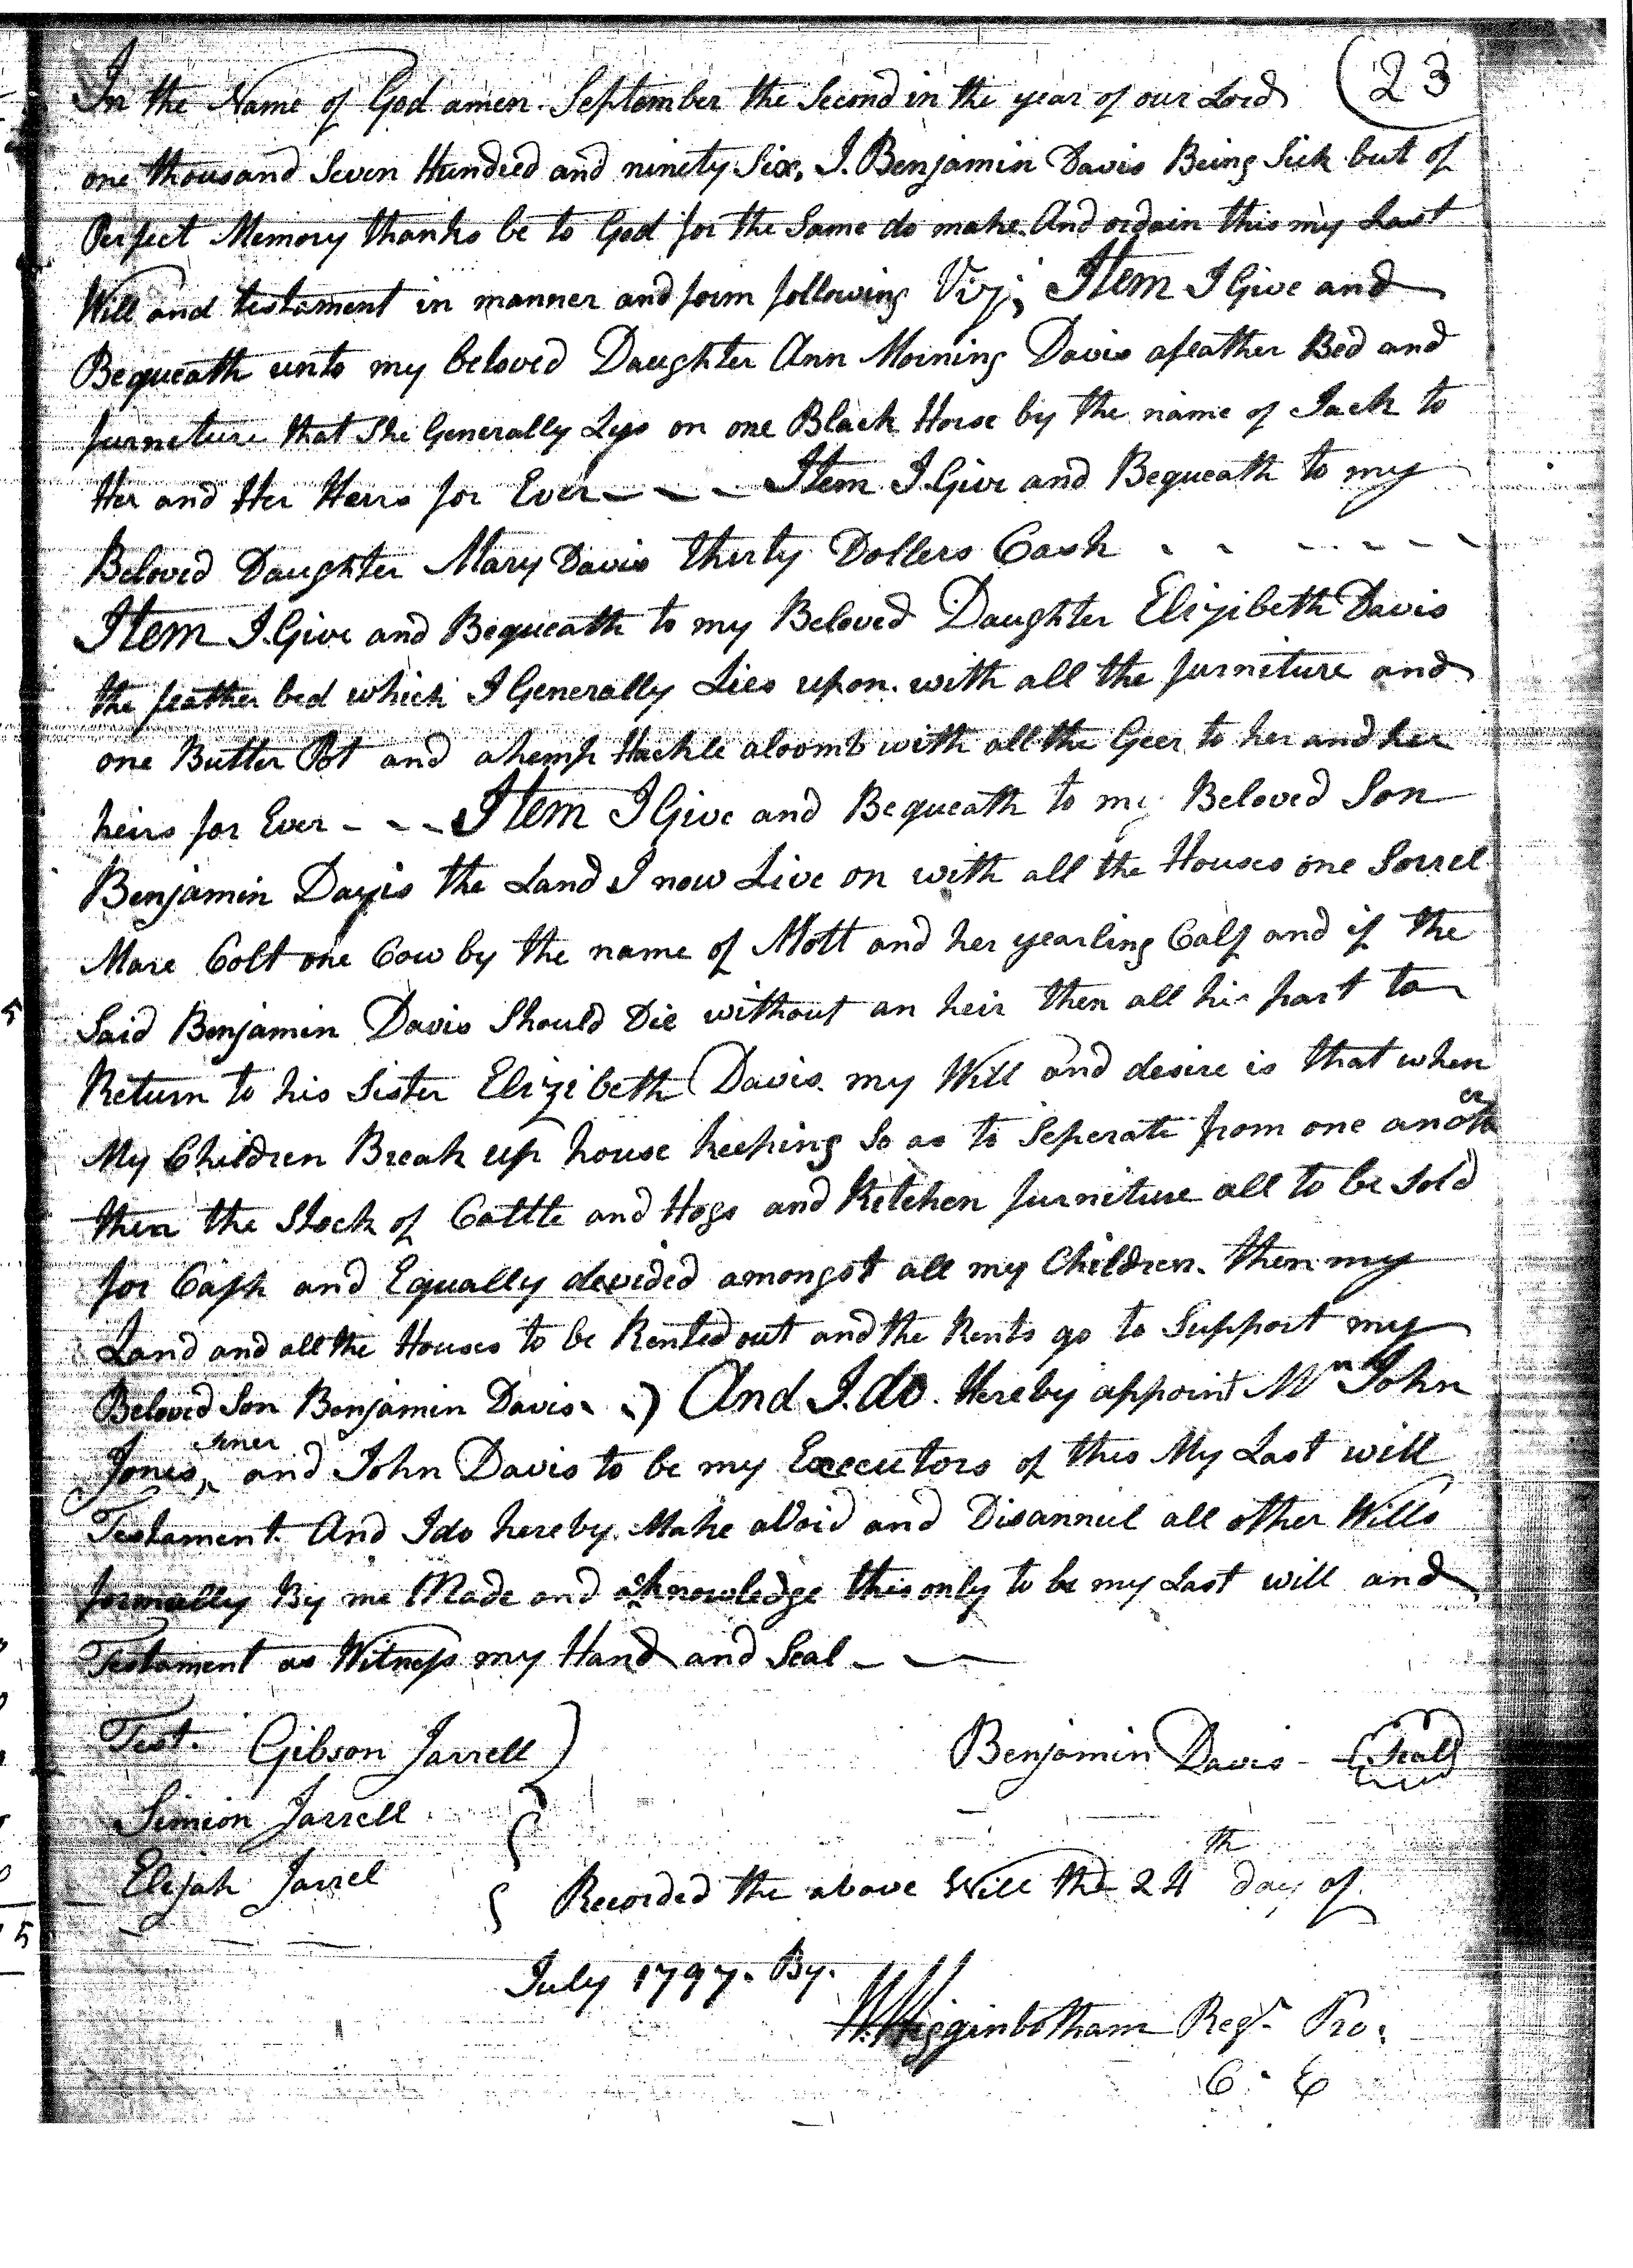 (23
In the Name of God amen. September the Second in the year of our Lord
one thousand Seven Hundred and ninety Six, I. Benjamin Davis Being Sick but of
Perfect Memory thanks be to God for the Same do make And ordain this my Last
Will and testament in manner and form following Viz; Item I Give and
Bequeath unto my beloved Daughter Ann Morning Davis a feather Bed and
furneture that She Generally Lys on one Black Horse by the name of Jack to
Her and Her Heirs for Ever - - - Item I Give and Bequeath to my
Beloved Daughter Mary Davis thirty Dollers Cash - - - - - -
Item I Give and Bequeath to my Beloved Daughter Elizibeth Davis
the feather bed which I Generally Lies upon. with all the furniture and
one Butter Pot and a hemp Hackle a loomb with all the Geer to her and her
heirs for Ever - - - Item I Give and Bequeath to my Beloved Son
Benjamin Davis the Land I now Live on with all the Houses one Sorrel
Mare Colt one Cow by the name of Mott and her yearling Calf and if the
Said Benjamin Davis Should Die without an heir then all his part to
Return to his Sister Elizibeth Davis. my Will and desire is that when
My Children Break up house keeping So as to Seperate from one another
then the Stock of Cattle and Hogs and Kitchen furniture all to be Sold
for Cash and Equally devided amongst all my Children. then my
Land and all the Houses to be Rented out and the Rents go to Support my
Beloved Son Benjamin Davis. And I do. Hereby appoint Mr John
Jones, Siner and John Davis to be my Executors of this My Last will
Testament. And I do hereby Make aVoid and Disannul all other Wills
formally By me Made and acknowledge this only to be my Last will and
Testament as Witness my Hand and Seal - - -
Test. Gibson Jarrell
Benjamin Davis - Seal
Simion Jarrell
Elijah Jarrel
Recorded the above Will the 24th day of
July 1797. By.
W. Higginbotham Regr. Pro.
C. E